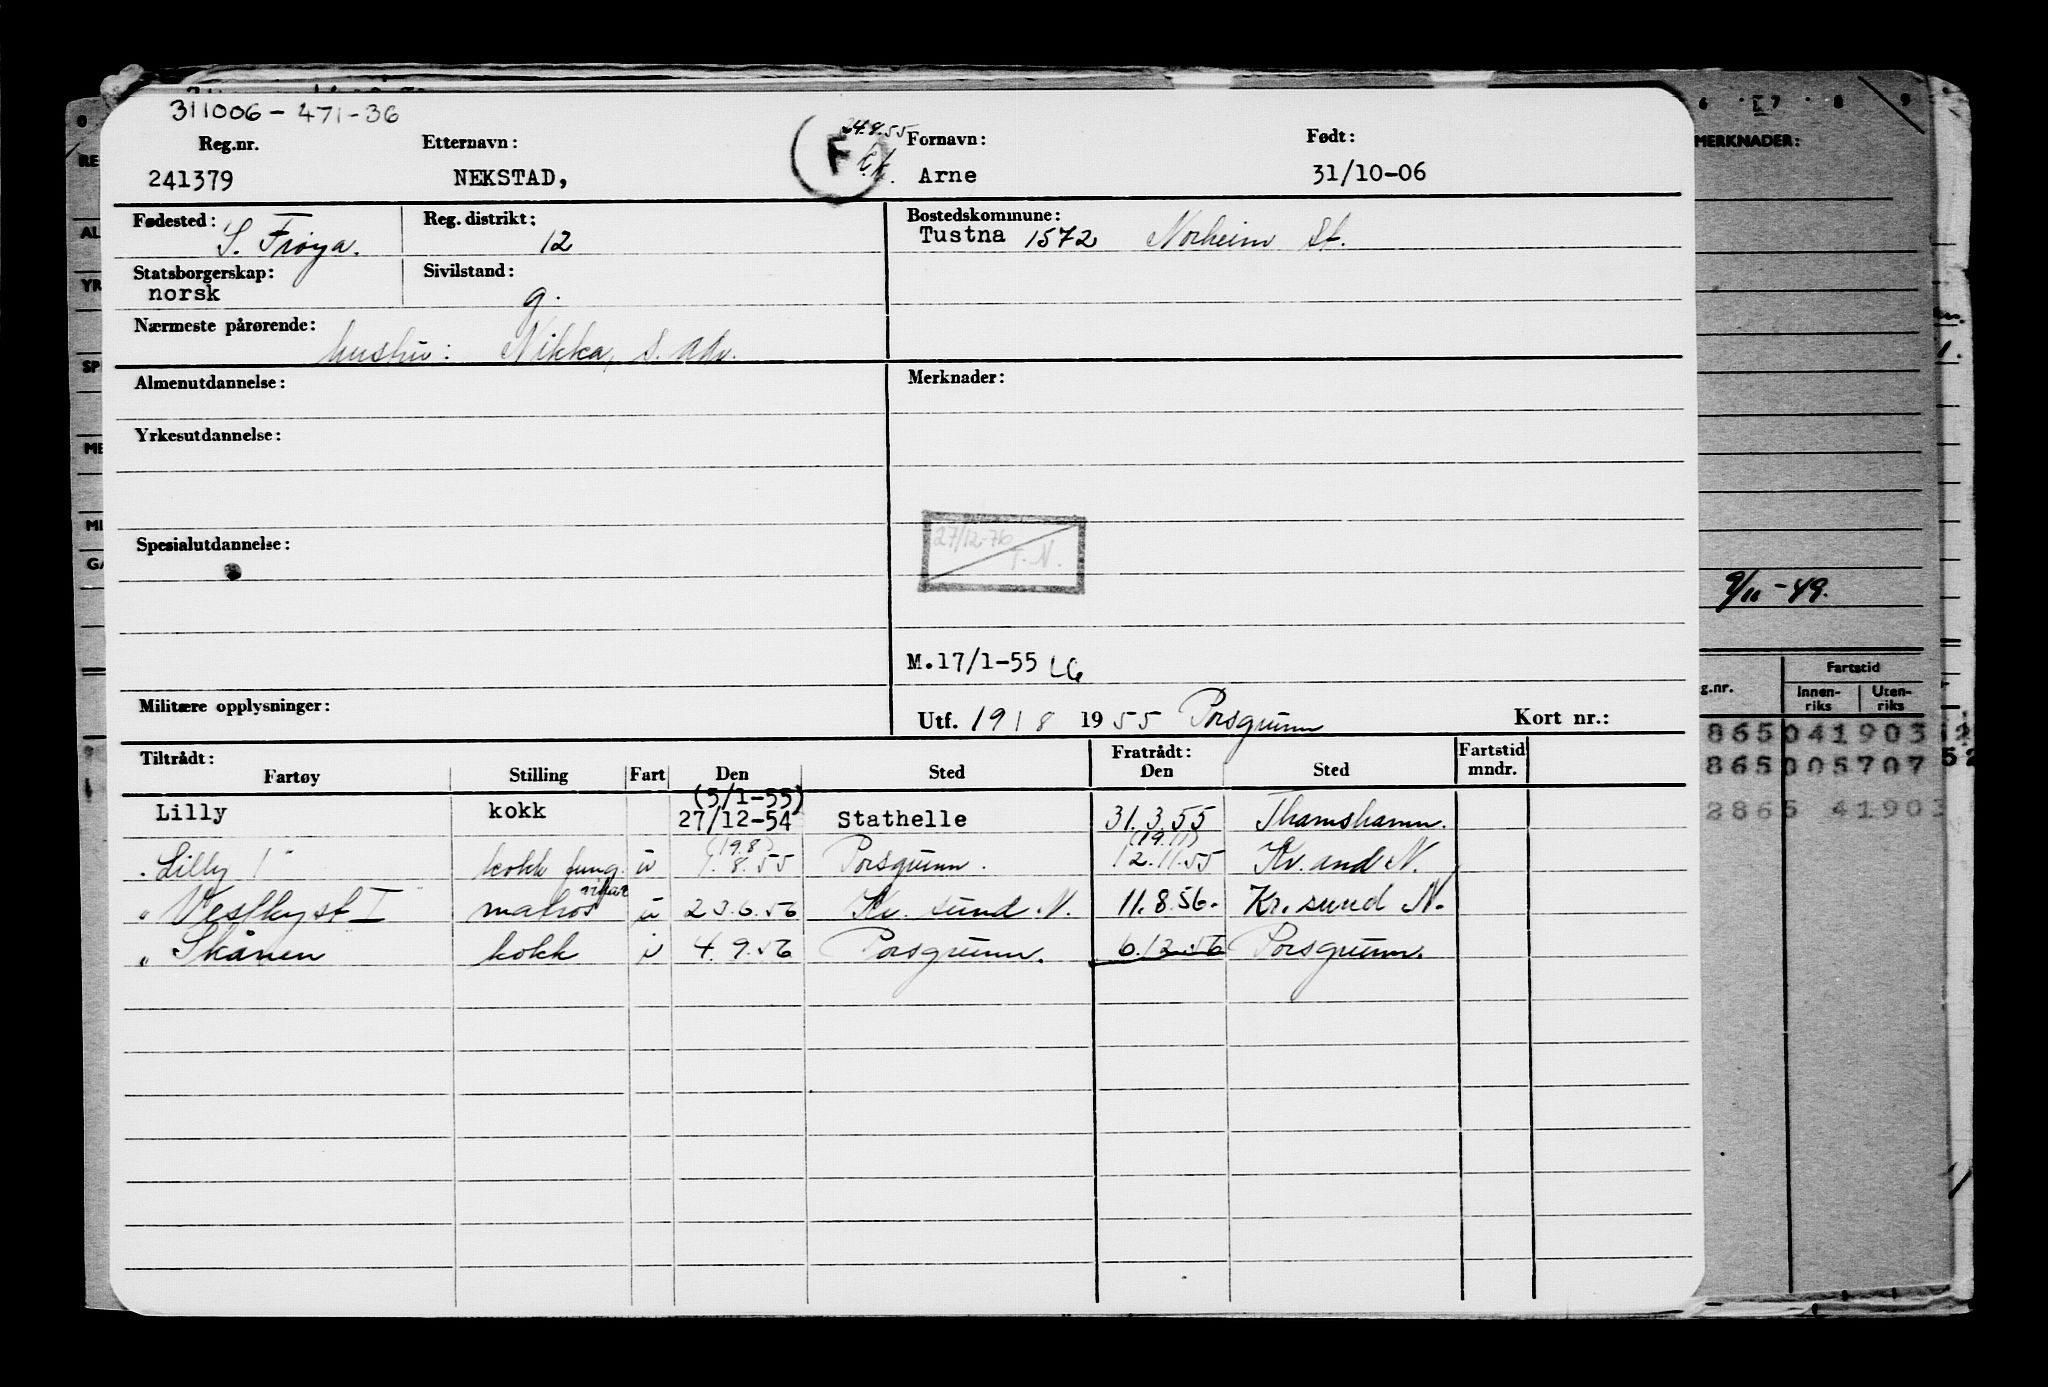 311006-471-36
Reg.nr. Etternavn: 24.8.55 Fornavn: Født:
241379 NEKSTAD, F Arne 31/10-06
Fødested: S. Frøya. Reg. distrikt: 12 Bostedskommune: Tustna 1572 Norheim st.
Statsborgerskap: norsk Sivilstand: g.
Nærmeste pårørende: hustru: Nikka, s. adr.
Almenutdannelse: Merknader:
Yrkesutdannelse:
27/12-76
T.N.
Spesialutdannelse:
M.17/1-55 LG
Militære opplysninger: Utf. 19 / 8 1955 Porsgrunn Kort nr.:
Tiltrådt: Fratrådt: Fartstid
Fartøy Stilling Fart Den Sted Den Sted mndr.
(5/1-55)
Lilly kokk 27/12-54 Stathelle 31.3.55 Thamshamn.
(19.8) (19.11)
Lilly kokk fung. u 1.8.55 Porsgrunn. 12.11.55 Kr. and N.
" Vestkyst I matros u 23.6.56 Kr. sund N. 11.8.56. Kr. sund N.
" Skånen kokk u 4.9.56 Porsgrunn. 6.12.56 Porsgrunn.
6 7 8 9
MERKNADER:
9/11-49.
g.nr. Fartstid
Innen-riks Uten-riks
865041903
865005707
2865 41903